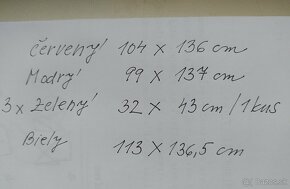 Červený 104 x 136 cm
Modrý 99 x 137 cm
3x Zelený 32 x 43 cm / 1 kus
Biely 113 x 136,5 cm
bazos.sk